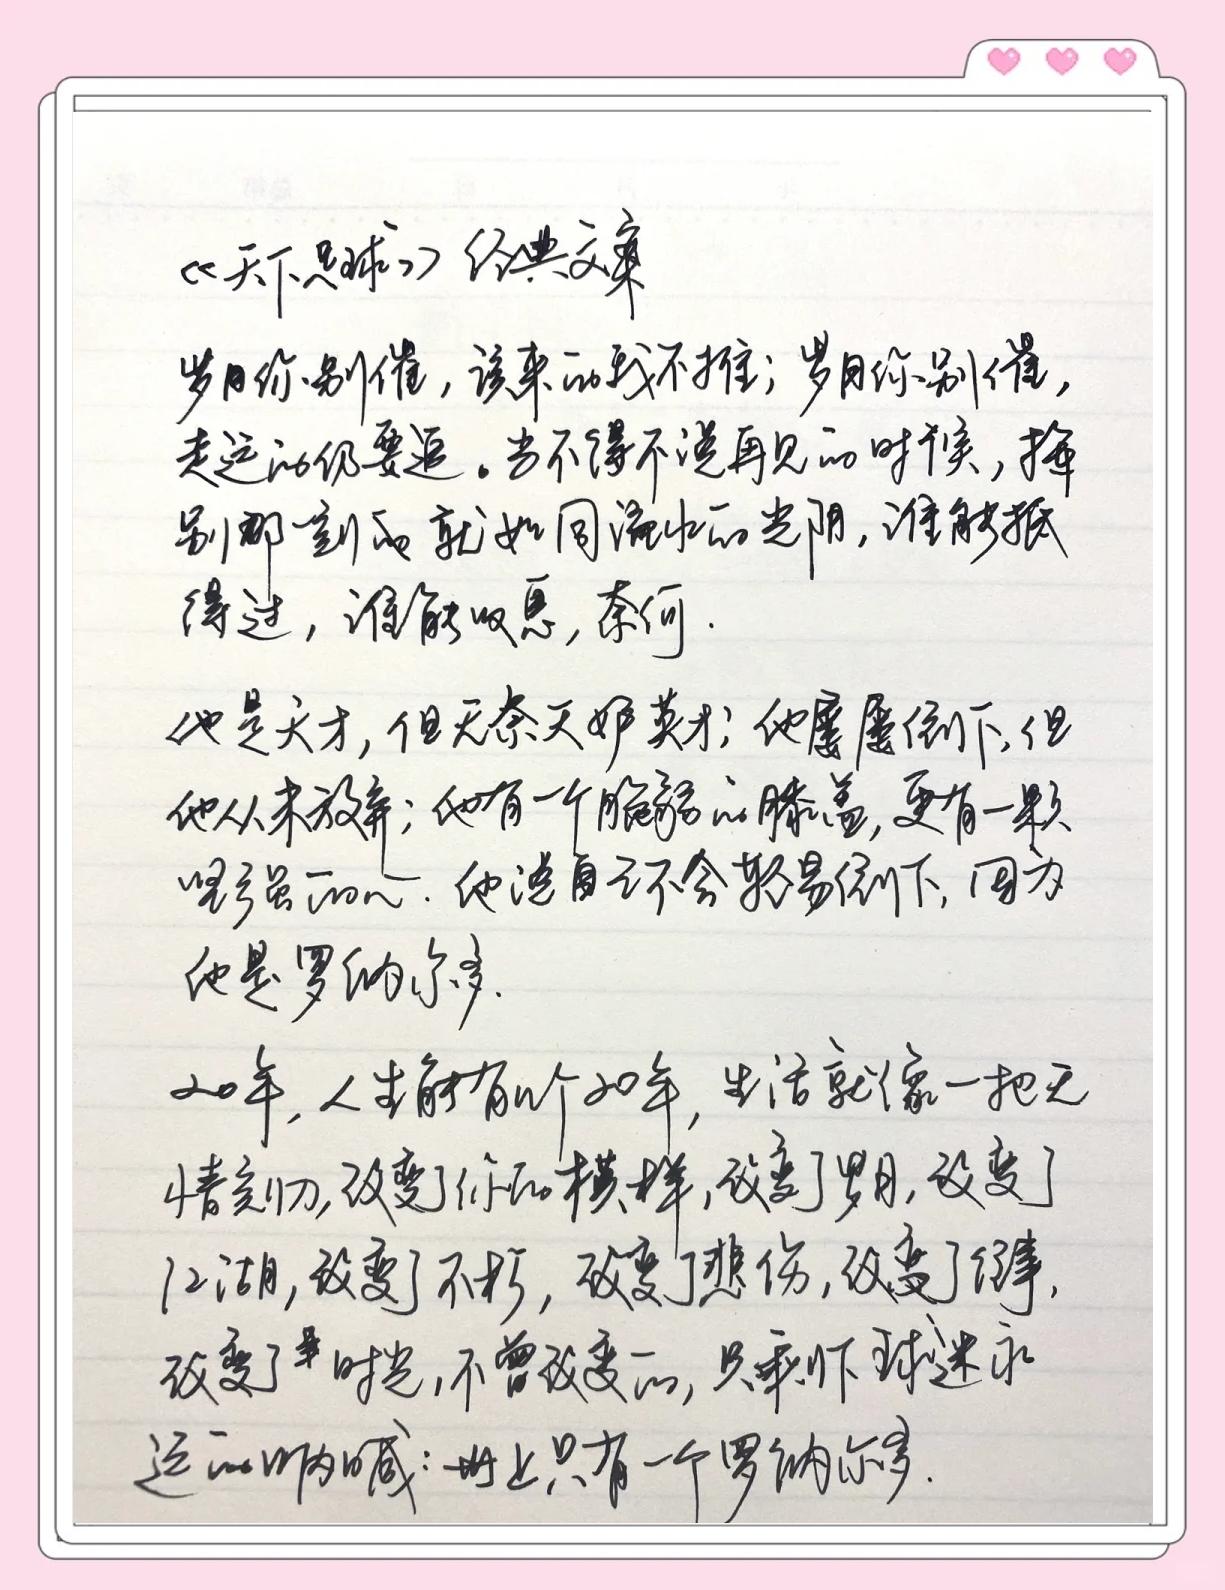 《天下足球》经典文案
岁月你别催，该来的我不推；岁月你别催，
走远的仍要追。当不得不说再见的时候，挥
别那一刻的就如同流水的光阴，谁能抵
得过，谁能叹息，奈何.
他是天才，但无奈天妒英才；他屡屡倒下，但
他从未放弃；他有一个脆弱的膝盖，更有一颗
坚强的心. 他说自己不会轻易倒下，因为
他是罗纳尔多.
20年，人生能有几个20年，生活就像一把无
情刻刀，改变了你的模样，改变了岁月，改变了
江湖，改变了不朽，改变了悲伤，改变了往事，
改变了时光，不曾改变的，只剩下球迷永
远的呐喊：世上只有一个罗纳尔多.